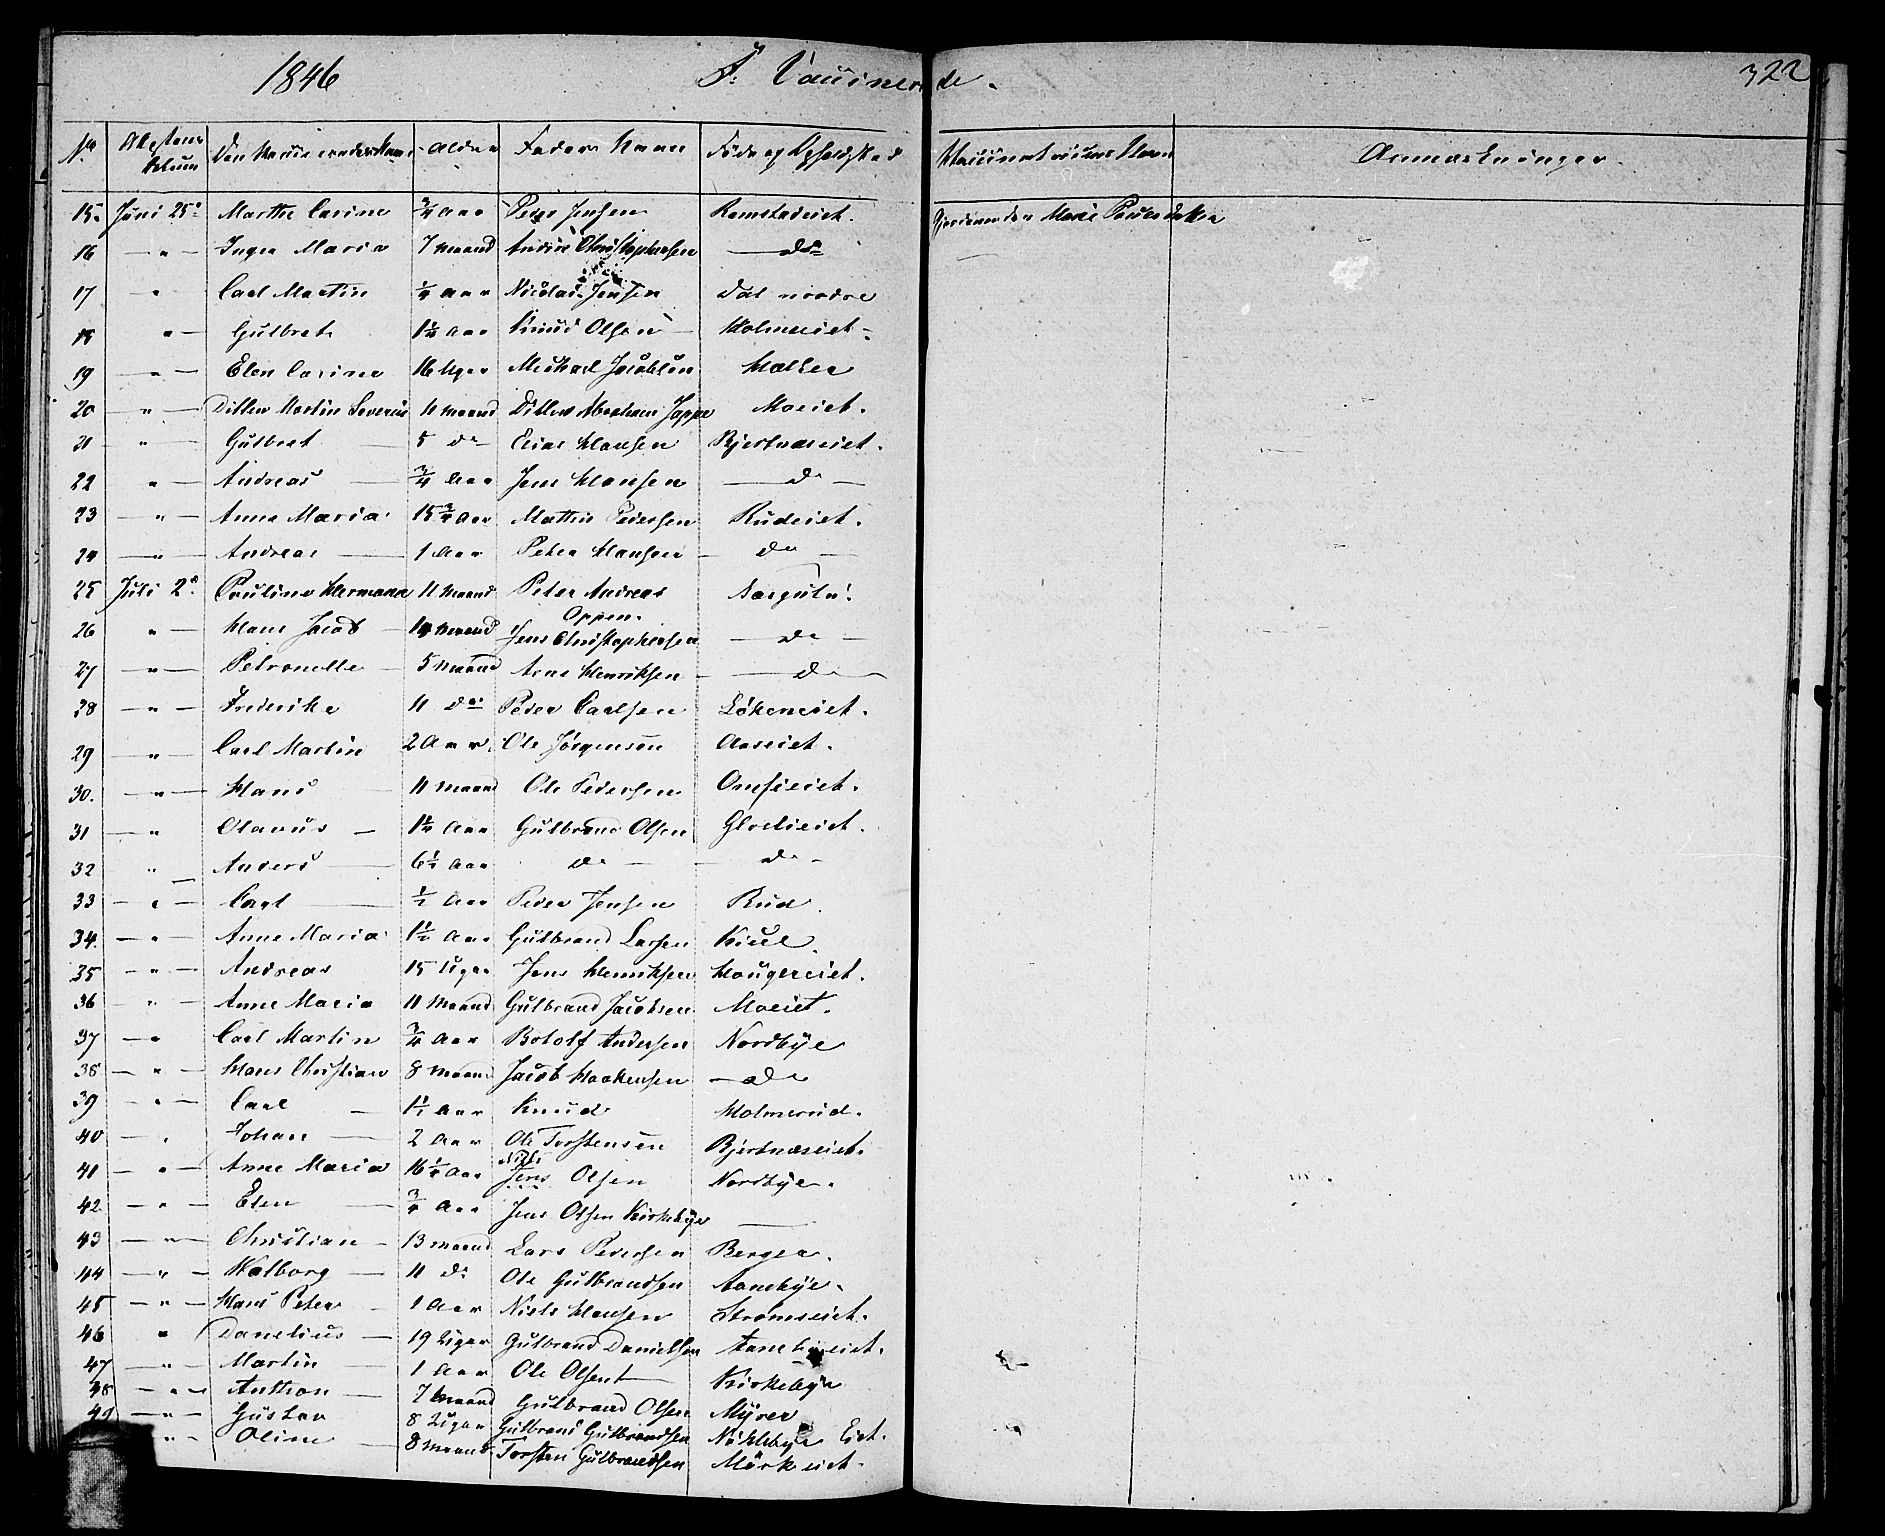 1846 F: Vaccinerede. 322
No Attestens Datum Den Vaccineredes Navn Alder Faders Navn Føde og Opholdssted Vaccinatricens Navn Anmærkninger.
15. Juni 25. Marthe Carine 3/4 Aar Peder Jensen Ramstadeiet. Gjordemoder Marie Paulsdatter
16 — " — Inger Maria 7 Maand Andreas Christophersen — do —
17 " — Carl Martin 1/4 Aar Nicolai Jensen Dal nordre
18 " — Gulbrand 1 1/4 Aar Knud Olsen — Holmseiet
19 — " — Elen Carine 16 Uger Michael Jacobsen
20 — " — Ditlev Martin Severin 11 Maand Ditlev Abraham Joppe Moeiet.
21 — " — Gulbrand — 5 do Hansen Bjertnæseiet.
22 " — Andreas — 3/4 Aar Jens Hansen — do —
23 — " — Anne Maria 15 3/4 Aar Mathis Pedersen Rudeiet.
24 — " — Andreas — 1 Aar Peter Hansen — do —
25 Juli 2. Pauline Hermana 11 Maand Peter Andreas
Oppen.
26 " — Hans Jacob — Maand Jens Christophersen — do —
27 — " — Petronelle — 5 Maand Arne Henriksen — — do —
28 — " — Frederike 11 do Peder Carlsen Løkeneiet.
29 " — Carl Martin 2 Aar Ole Jørgensen Aaseiet.
30. — " — Hans — 11 Maand Ole Pedersen
31 — " Olavus — 1 1/4 Aar Gulbrand Olsen
32 " — Anders — 6 1/2 Aar do — — do —
33 — " — Carl — 1/2 Aar Peder Jensen Rud.
34. — " — Anne Maria 1 1/2 Aar Gulbrand Larsen
35 — " — Andreas 15 Uger Jens Henriksen Haugereiet.
36 " — Anne Maria 11 Maand Gulbrand Jacobsen Moeiet.
37 — " Carl Martin 3/4 Aar Botolf Andersen Nordbye
38 — " — Hans Christian 8 Maand Jacob Haakensen — do
39 — " — Carl — 1 1/2 Aar Knud Holmerud.
40 — " Johan — 2 Aar Ole Torstensen Bjertnæseiet.
41 — " — Anne Maria 16 1/2 Aar Niels
Jens Olsen Nordbye.
42 — " — Elen — 3/4 Aar Jens Olsen Kirkebye —
43 — " — Christian — 13 Maand Lars Pedersen Berger.
44 — " — Walborg — 11 do Ole Gulbrandsen Aanebye.
45 — " — Hans Peter — 1 Aar Niels Hansen Strømseiet.
46 " Danelius — 19 Uger Gulbrand Danielsen Aanebyeeiet.
47 — " — Martin — 1 Aar Ole Olsen — Kirkebye
48 — " — Anthon — 7 Maand Gulbrand Olsen Myrer
49 — " — Gustav 8 Uger Gulbrand Gulbrandsen Eiet.
— " — Oline — 8 Maand Torsten Gulbrandsen Mørkeiet.